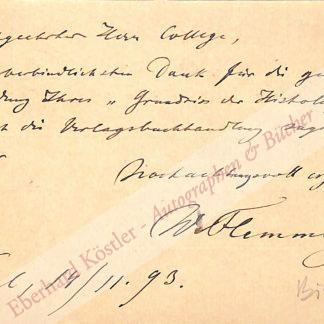 geehrter Herr College,
verbindlichsten Dank für die gü
dung Ihres „Grundriss der Histolo
die Verlagsbuchhandlung
Hochachtungsvoll erg
W. Flemming
11. 93.
Eberhard Köstler - Autographen & Bücher
Bi